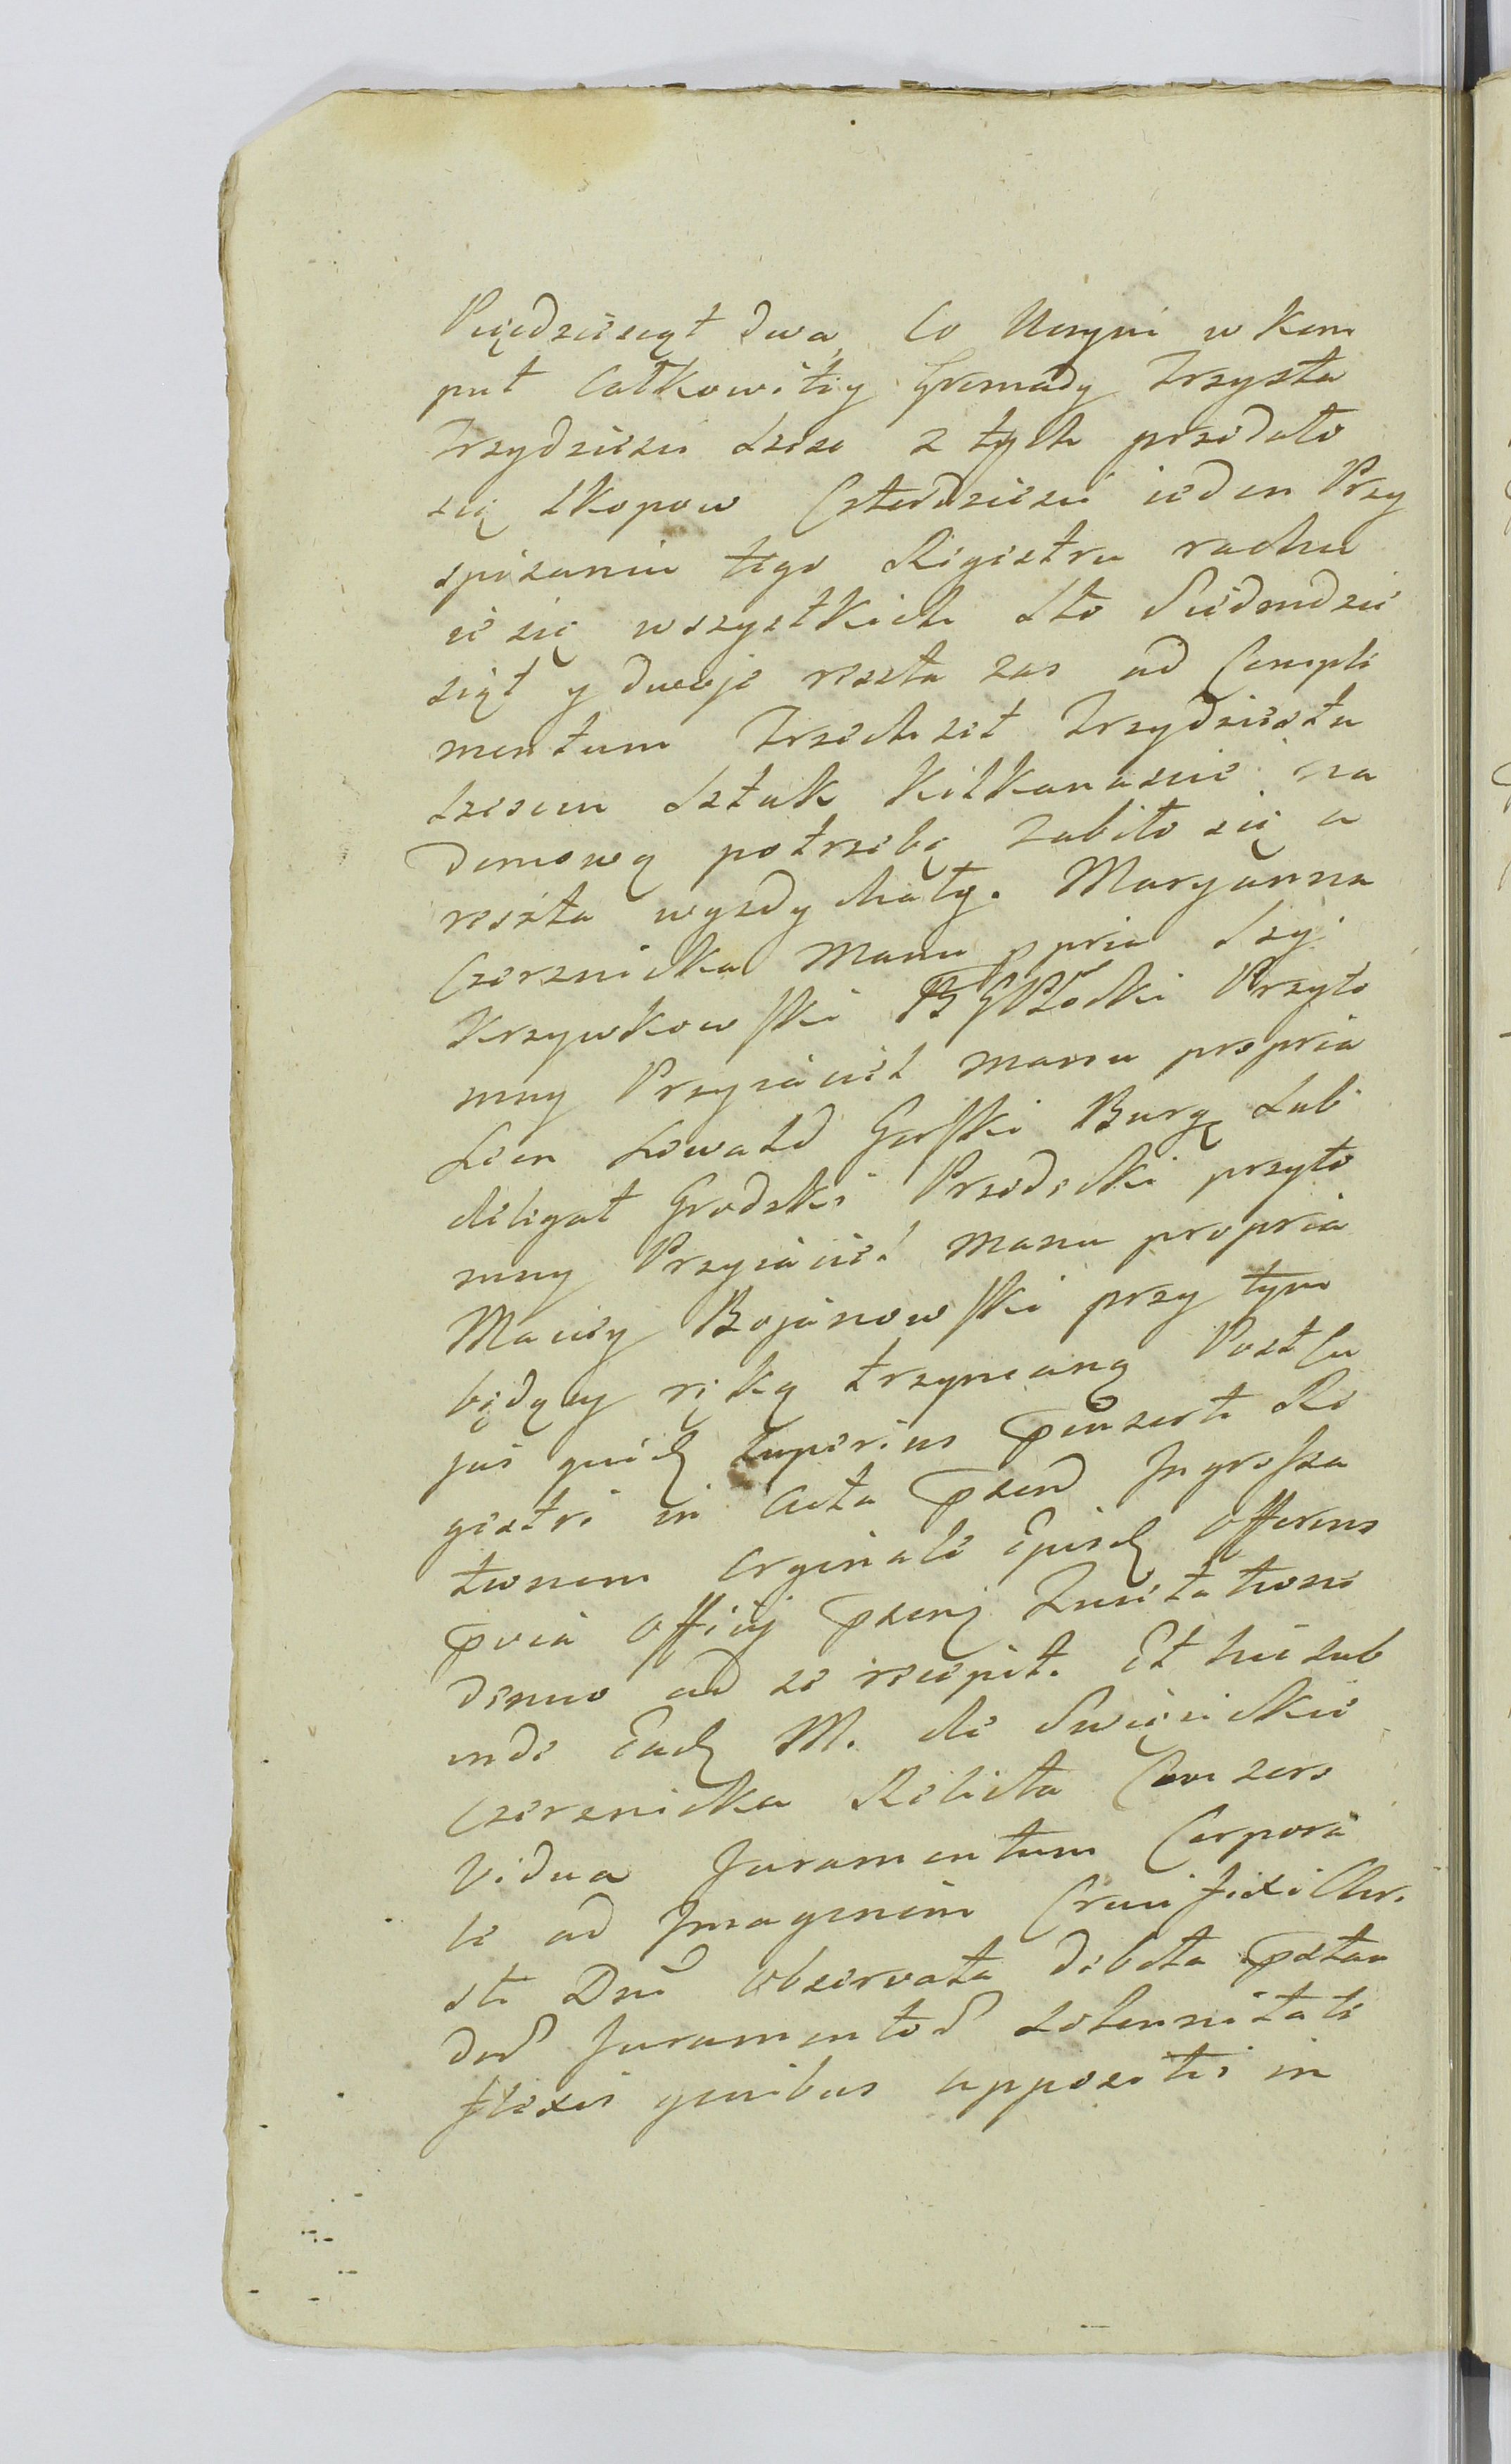 Pięcdziesiąt dwa, Co Uczyni w Kom
put Całkowitey Gromady Trzysta
Trzydzieści sześć z tych przedało
się skopow Czterdzieści ieden Przy
spisaniu tego Regiestru rachu
ie się wszystkich sto Siedmdzie
siąt y dwoje reszta zas ad Comple
mentum Trzechset Trzydziestu
sześciu sztuk Kilkanascie na
domową potrzebę zabiło się a
reszta wyzdychały. Maryanna
Czerznicka Manu ppria Szy
Krzywkowski BGPłocki Przyto
mny Przyiaciel manu propria
Leon Lewald Gorski Burg Sub
delegat Grodzki Przedecki przyto
mny Przyiaciel manu propria
Maciey Bojanowski przy tym
będący ręką trzymaną Post Cu
jus quid superius inserti Re
gestri in Acta psend Ingrossa
tionem orginale Ejusd offerens
pcia officij psenj Quietatione
denuo ad se recepit. Et hic sub
inde Ead M. de Swięcickie
Czerznicka Relicta Consors
Vidua Juramentum Corpora
le ad Imaginem Crucifixi Chri
sti Dni observata debita pstan
dod Juramentod solennitate
flexis genibus appositis in